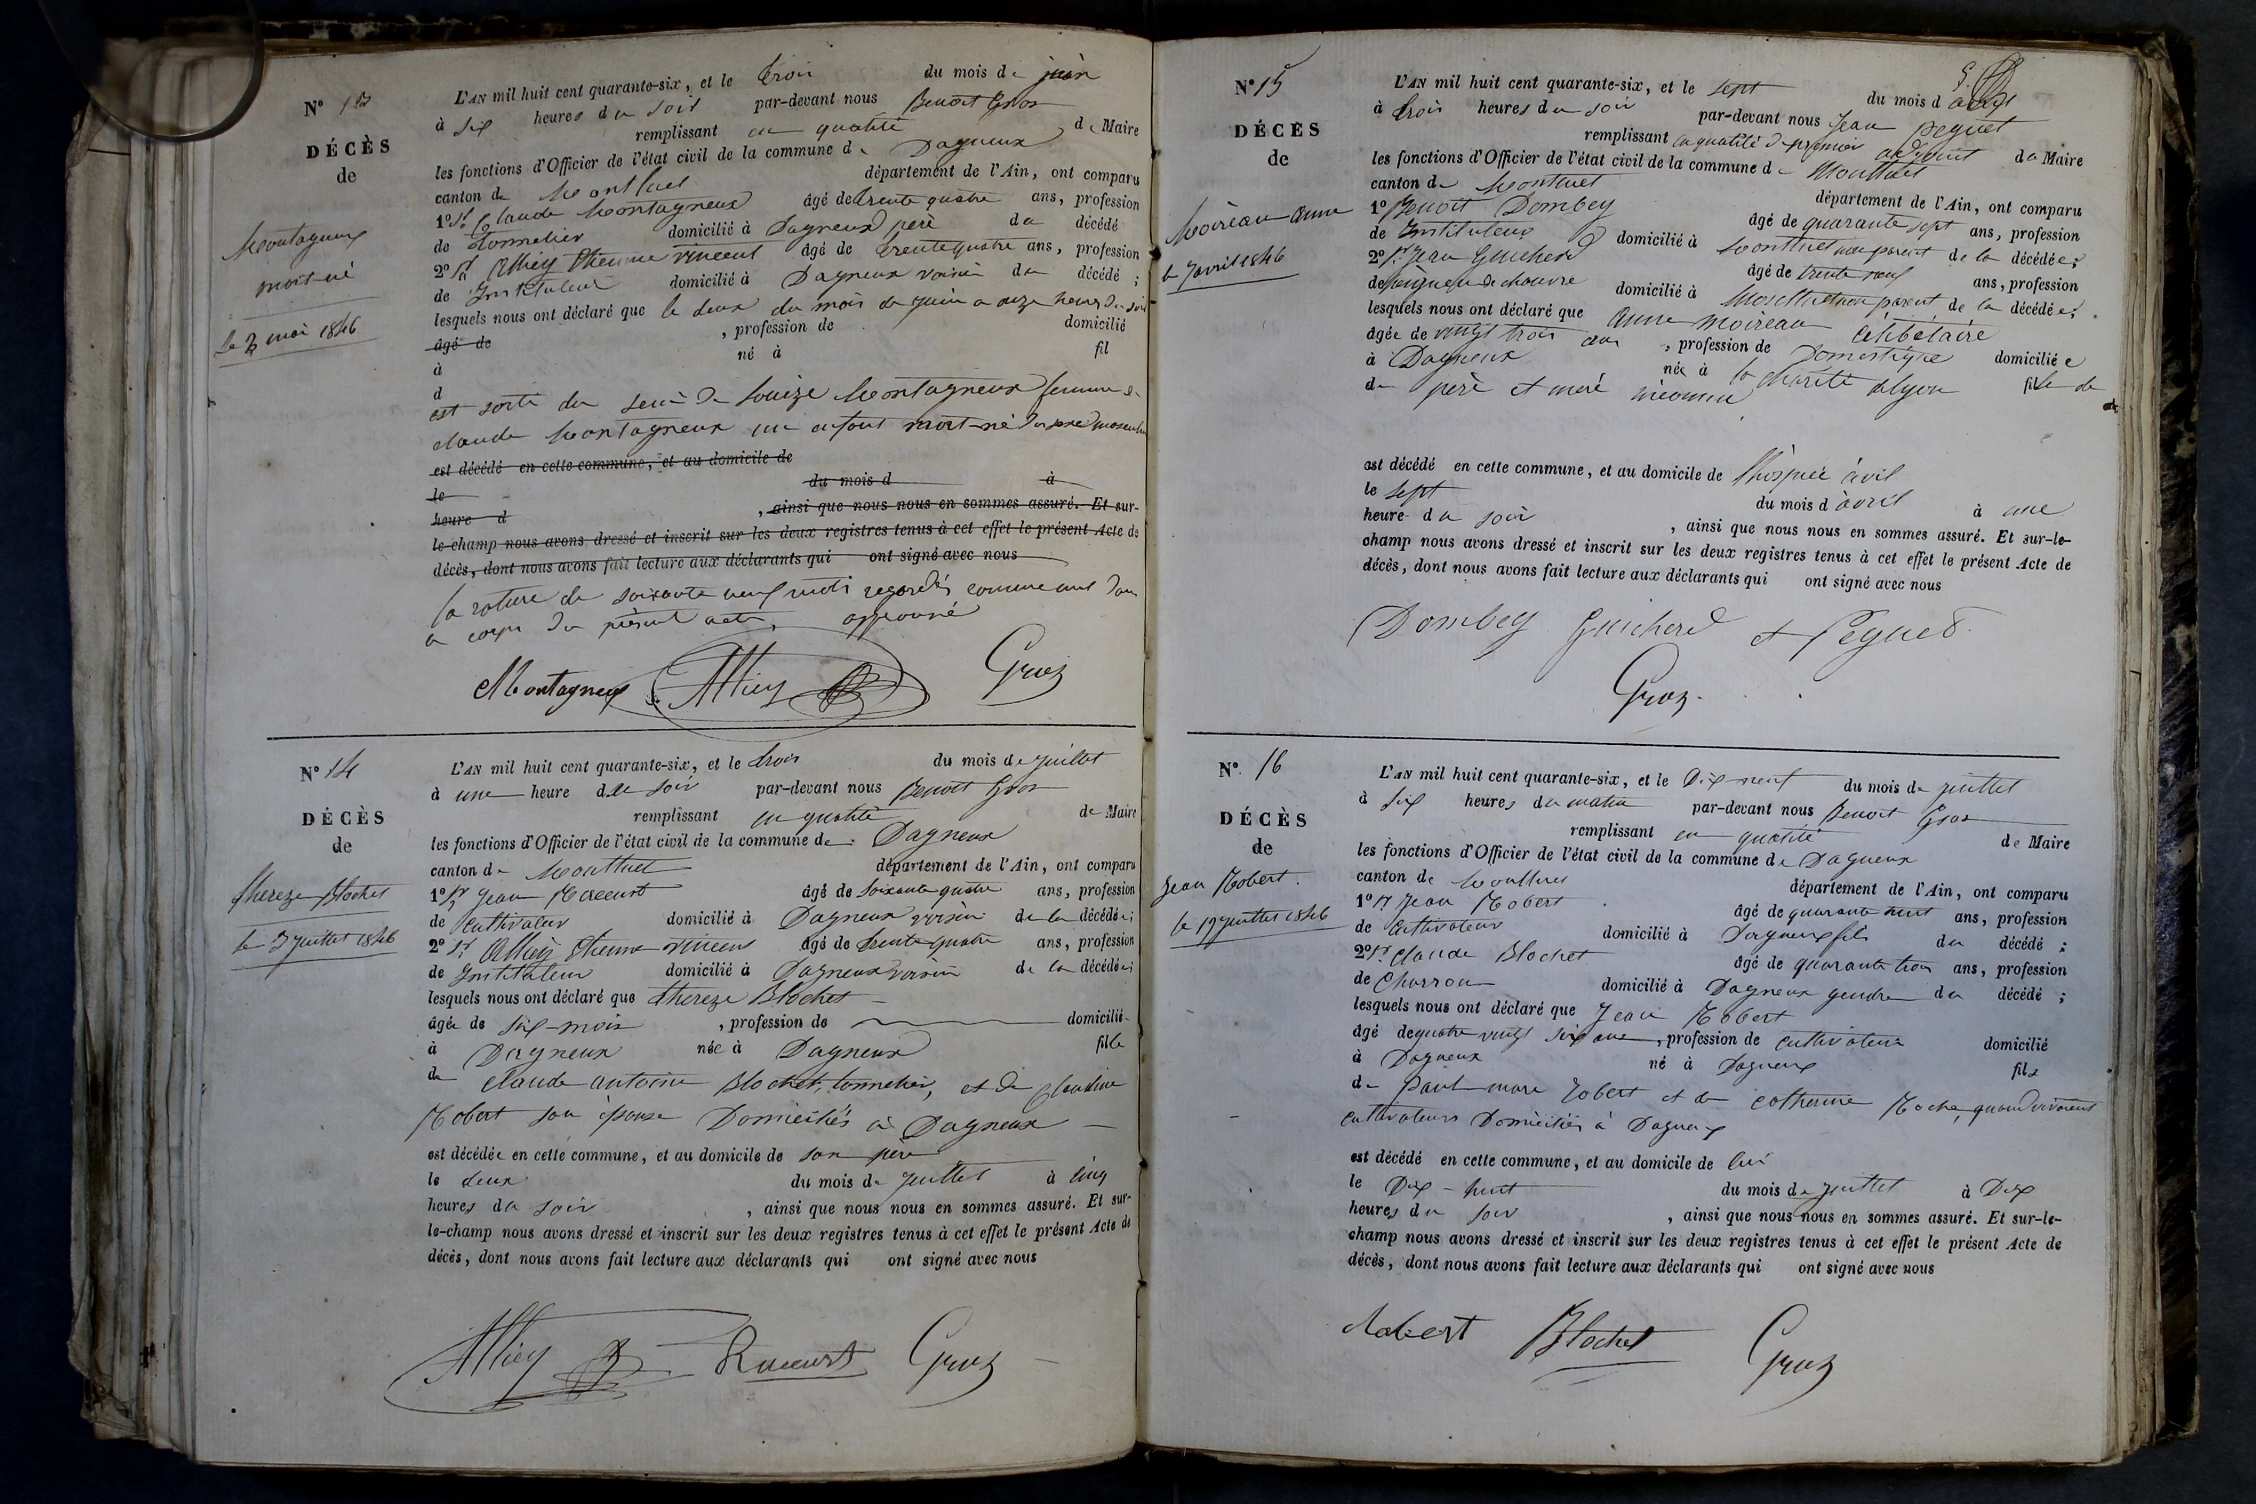 N° 13
DÉCÈS
de
Montagneux
mort-né
le 3 mai 1846
L'AN mil huit cent quarante-six, et le trois du mois de juin
à six heures du soir par-devant nous Benoît Gros
remplissant en qualité de Maire
les fonctions d'Officier de l'état civil de la commune de Dagneux
canton de Montluel département de l'Ain, ont comparu
1° Sr Claude Montagneux âgé de trente quatre ans, profession
de tonnelier domicilié à Dagneux père du décédé
2° Sr Alliey Etienne vincent âgé de trente quatre ans, profession
de Instituteur domicilié à Dagneux voisin du décédé ;
lesquels nous ont déclaré que le deux du mois de juin a onze heures du soir
âgé de , profession de domicilié
à né à fil
d
est sorti du sein de Louize Montagneux femme de
claude Montagneux un enfant mort-né du sexe masculin
est décédé en cette commune, et au domicile de
le du mois d à
heure d , ainsi que nous nous en sommes assuré. Et sur-
le-champ nous avons dressé et inscrit sur les deux registres tenus à cet effet le présent Acte de
décès, dont nous avons fait lecture aux déclarants qui ont signé avec nous
la rature de soixante neuf mots regardés comme nul dans
le corps du présent acte, approuvé
Montagneux Alliey Gros
N° 14
DÉCÈS
de
thereze Blochet
le 3 juillet 1846
L'AN mil huit cent quarante-six, et le trois du mois de juillet
à une heure du soir par-devant nous Benoit Gros
remplissant en qualité de Maire
les fonctions d'Officier de l'état civil de la commune de Dagneux
canton de Montluel département de l'Ain, ont comparu
1° Sr Jean Raccurt âgé de soixante quatre ans, profession
de cultivateur domicilié à Dagneux voisin de la décédée ;
2° Sr Alliey Etienne vincent âgé de trente quatre ans, profession
de Instituteur domicilié à Dagneux voisin de la décédée ;
lesquels nous ont déclaré que thereze Blochet
âgée de six-mois , profession de domicilié
à Dagneux née à Dagneux fille
de claude antoine Blochet, tonnelier, et de Claudine
Robert son épouse Domiciliés à Dagneux
est décédée en cette commune, et au domicile de son père
le deux du mois de juillet à cinq
heures du soir , ainsi que nous nous en sommes assuré. Et sur-
le-champ nous avons dressé et inscrit sur les deux registres tenus à cet effet le présent Acte de
décès, dont nous avons fait lecture aux déclarants qui ont signé avec nous
Alliey Raccurt Gros
N° 15
DÉCÈS
de
Moireau anne
le 7 avril 1846
L'AN mil huit cent quarante-six, et le sept du mois d avril
à trois heures du soir par-devant nous Jean Peguet
remplissant en qualité de premier adjoint du Maire
les fonctions d'Officier de l'état civil de la commune de Montluel
canton de Montluel département de l'Ain, ont comparu
1° Benoit Dombey âgé de quarante sept ans, profession
de Instituteur domicilié à Montluel non parent de la décédée ;
2° Sr Jean Guicherd âgé de trente neuf ans, profession
de peigneur de chanvre domicilié à Montluel non parent de la décédée ;
lesquels nous ont déclaré que anne moireau célibataire
âgée de vingt trois ans , profession de Domestique domiciliée
à Dagneux née à la charité de lyon fille de
de père et mère inconnu
est décédé en cette commune, et au domicile de l'hospice civil
le sept du mois d avril à une
heure du soir , ainsi que nous nous en sommes assuré. Et sur-le-
champ nous avons dressé et inscrit sur les deux registres tenus à cet effet le présent Acte de
décès, dont nous avons fait lecture aux déclarants qui ont signé avec nous
Dombey Guicherd et Peguet
Gros
N° 16
DÉCÈS
de
Jean Robert
le 19 juillet 1846
L'AN mil huit cent quarante-six, et le Dix-neuf du mois de juillet
à six heures du matin par-devant nous Benoit Gros
remplissant en qualité de Maire
les fonctions d'Officier de l'état civil de la commune de Dagneux
canton de Montluel département de l'Ain, ont comparu
1° Sr Jean Robert âgé de quarante huit ans, profession
de cultivateur domicilié à Dagneux fils du décédé ;
2° Sr claude Blochet âgé de quarante trois ans, profession
de Charron domicilié à Dagneux gendre du décédé ;
lesquels nous ont déclaré que Jean Robert
âgé de quatre vingt six ans , profession de cultivateur domicilié
à Dagneux né à Dagneux fils
de Paul marc robert et de catherine Roche, quand vivaient
cultivateurs Domiciliés à Dagneux
est décédé en cette commune, et au domicile de lui
le Dix-huit du mois de juillet à Dix
heures du soir , ainsi que nous nous en sommes assuré. Et sur-le-
champ nous avons dressé et inscrit sur les deux registres tenus à cet effet le présent Acte de
décès, dont nous avons fait lecture aux déclarants qui ont signé avec nous
Robert Blochet Gros